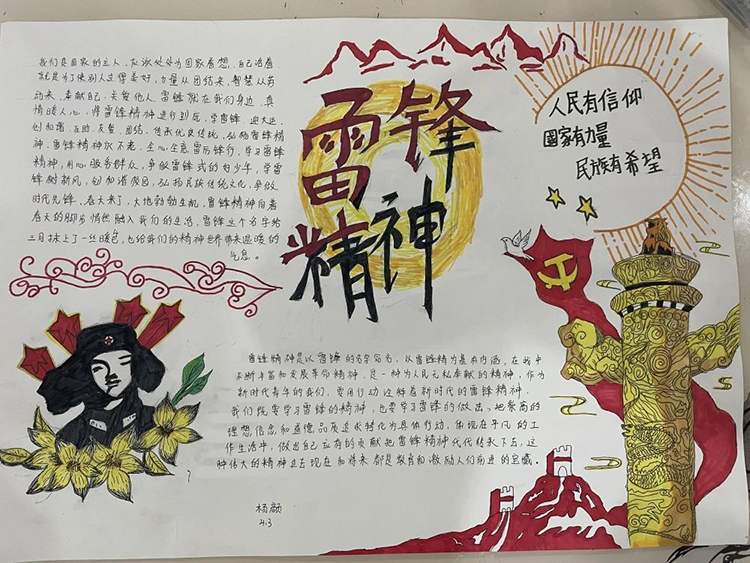 雷锋
精神
人民有信仰
国家有力量
民族有希望
我们是国家的主人,应该处处为国家着想,自己活着
就是为了使别人生活得美好,力量从团结来,智慧从劳
动来,奉献自己,关爱他人,雷锋就在我们身边,真
情暖人心,将雷锋精神进行到底,学雷锋,迎大运
创和谐,互助,友爱,团结,传承优良传统,弘扬雷锋精
神,雷锋精神永不老,全心全意雷厉锋行,学习雷锋
精神,用心服务群众,争做雷锋式的好少年,学雷
锋树新风,创和谐校园,弘扬民族传统文化,争做
时代先锋,春天来了,大地勃勃生机,雷锋精神向着
春天的脚步悄然融入我们的生活,雷锋这个名字给
三月抹上了一丝暖色,也给我们的精神世界带来温暖的
气息。
雷锋精神是以雷锋的名字命名,以雷锋精为基有内涵,在我中
不断丰富和发展革命精神,是一种为人民无私奉献的精神,作为
新时代青年的我们,要用行动诠释着新时代的雷锋精神,
我们既要学习雷锋的精神,也要学习雷锋的做法,把崇高的
理想信念和道德品质追求转化为具体行动,体现在平凡的工
作生活中,做出自己应有的贡献把雷锋精神代代传承下去,这
种伟大的精神过去现在和将来都是教育和激励人们前进的宝藏。
杨颜
4.3